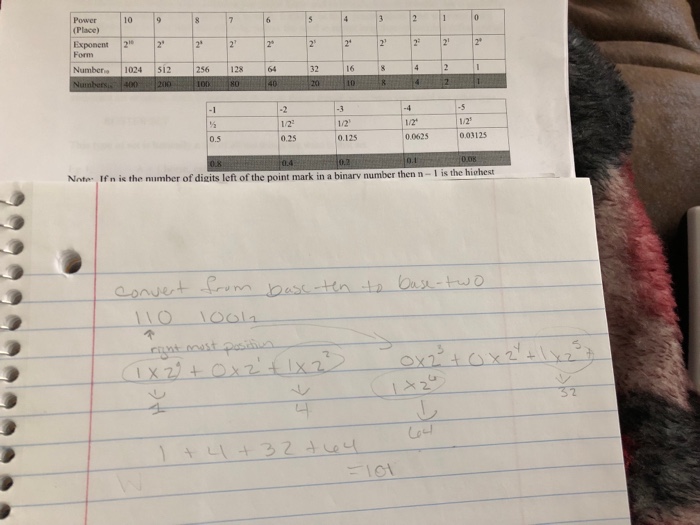 Power (Place) 10 9 8 7 6 5 4 3 2 1 0
Exponent Form 2¹⁰ 2⁹ 2⁸ 2⁷ 2⁶ 2⁵ 2⁴ 2³ 2² 2¹ 2⁰
Number 1024 512 256 128 64 32 16 8 4 2 1
Number 400 200 100 80 40 20 10 8 4 2 1
-1 -2 -3 -4 -5
½ 1/2² 1/2³ 1/2⁴ 1/2⁵
0.5 0.25 0.125 0.0625 0.03125
0.8 0.4 0.2 0.1 0.08
Note: If n is the number of digits left of the point mark in a binary number then n – 1 is the highest
convert from base-ten to base-two
110 1001₂
right most position
1x2⁰ + 0x2¹ + 1x2² 0x2³ + 0x2⁴ + 1x2⁵ +
1x2⁶
1 4 32
64
1 + 4 + 32 + 64
=101
W